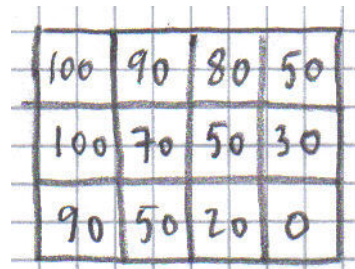 100 90 80 50
100 70 50 30
90 50 20 0